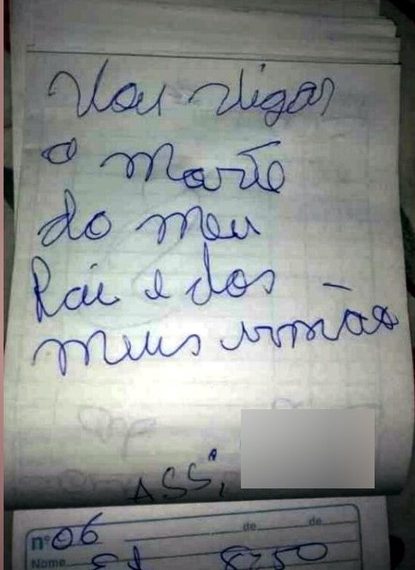 Vou vigar
a morte
do meu
Pai e dos
meus irmãos
ASS,
nº 06
de de
Nome
8250